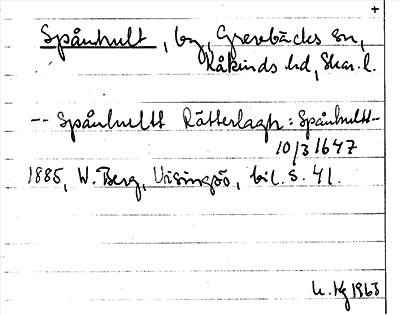 +
Spånhult, by, Grevbäcks sn,
Kåkinds hd, Skar. l.
-- Spånhultt Rätterlagh: Spånhultt--
10/3 1647
1885, W. Berg, Visingsö, bil. s. 41.
K. Hg 1963